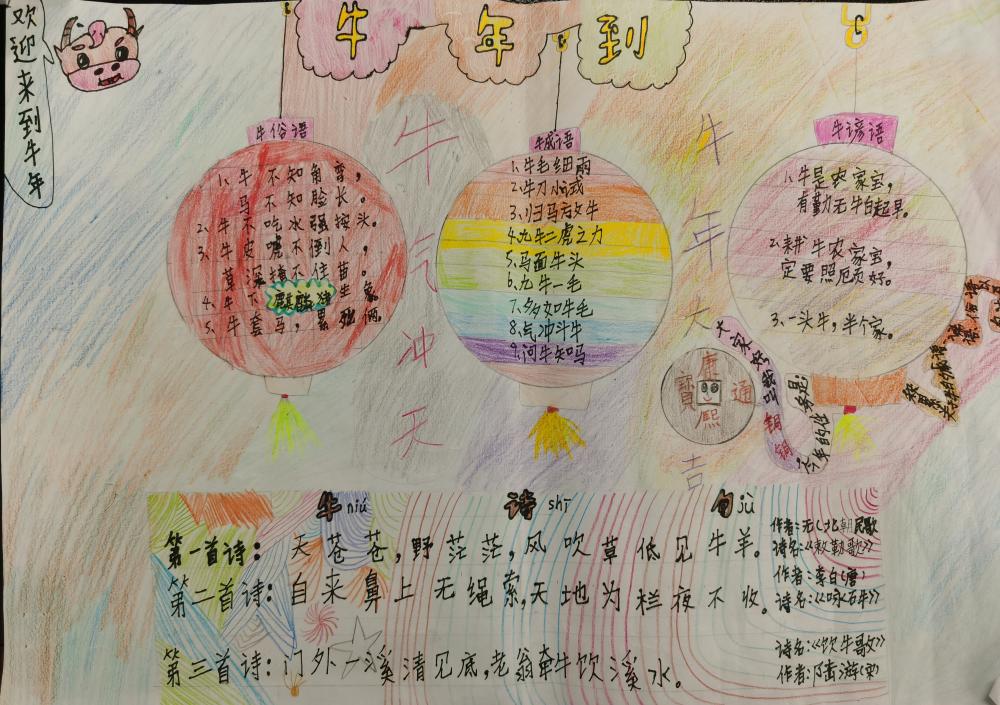 欢迎来到牛年
牛年到
牛俗语
1、牛不知角弯，
马不知脸长。
2、牛不吃水强按头。
3、牛皮唬不倒人，
草深撞不住苗。
4、牛下麒麟猪生象。
5、牛套马，累死俩。
牛气冲天
牛成语
1、牛毛细雨
2、牛刀小试
3、归马放牛
4、九牛二虎之力
5、马面牛头
6、九牛一毛
7、多如牛毛
8、气冲斗牛
9、问牛知马
牛年大吉
牛谚语
1、牛是农家宝，
有勤无牛白起早。
2、耕牛农家宝，
定要照顾好。
3、一头牛，半个家。
康熙通寶
大家好我叫铜钥
牛 niú 诗 shī 句 jù
第一首诗：天苍苍，野茫茫，风吹草低见牛羊。
作者：无(北朝民歌
诗名：《敕勒歌》
第二首诗：自来鼻上无绳索，天地为栏夜不收。
作者：李白(唐)
诗名：《咏石牛》
第三首诗：门外一溪清见底，老翁牵牛饮溪水。
诗名：《饮牛歌》
作者：陆游(宋)